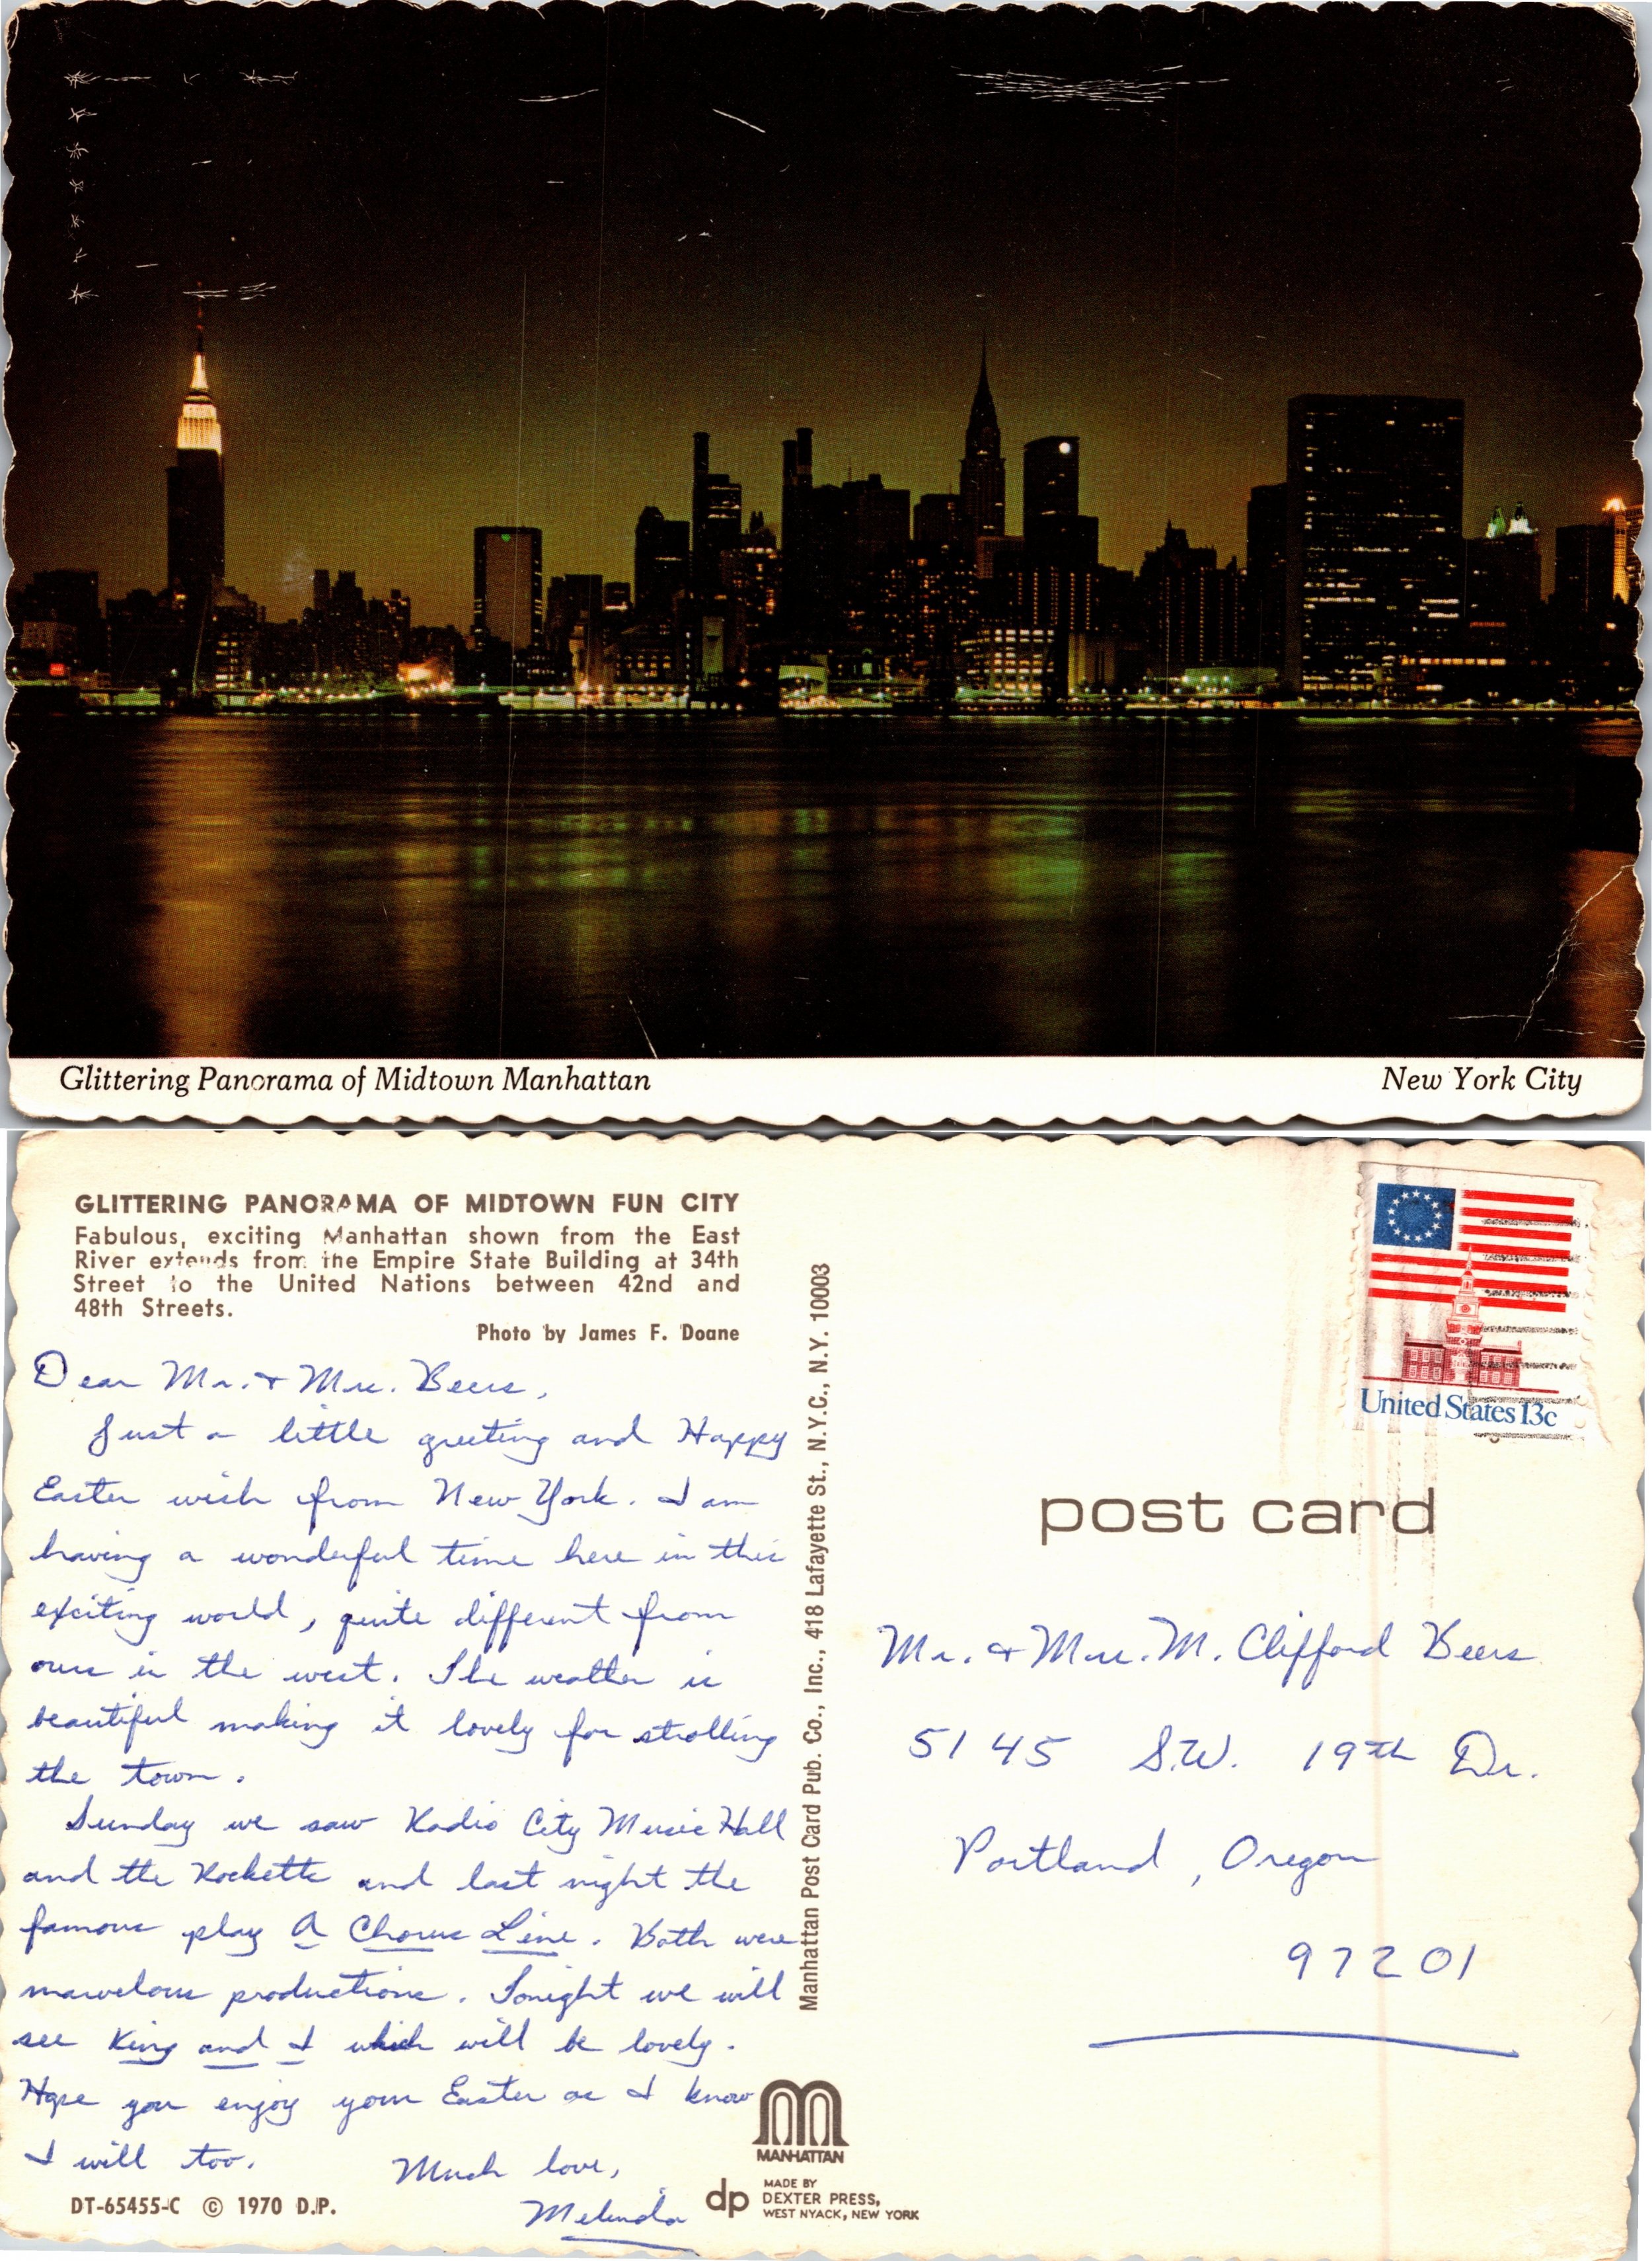 Glittering Panorama of Midtown Manhattan
New York City
GLITTERING PANORAMA OF MIDTOWN FUN CITY
Fabulous, exciting Manhattan shown from the East
River extends from the Empire State Building at 34th
Street to the United Nations between 42nd and
48th Streets.
Photo by James F. Doane
Dear Mr. + Mrs. Beers,
Just a little greeting and Happy
Easter wish from New York. I am
having a wonderful time here in this
exciting world, quite different from
ours in the west. The weather is
beautiful making it lovely for strolling
the town.
Sunday we saw Radio City Music Hall
and the Rockette and last night the
famous play A Chorus Line. Both were
marvelous productions. Tonight we will
see King and I which will be lovely.
Hope you enjoy your Easter as I know
I will too.
Much love,
Melinda
DT-65455-C © 1970 D.P.
Manhattan Post Card Pub. Co., Inc., 418 Lafayette St., N.Y.C., N.Y. 10003
MANHATTAN
dp
MADE BY
DEXTER PRESS,
WEST NYACK, NEW YORK
United States 13c
post card
Mr. + Mrs. M. Clifford Beers
5145 S.W. 19th Dr.
Portland, Oregon
97201